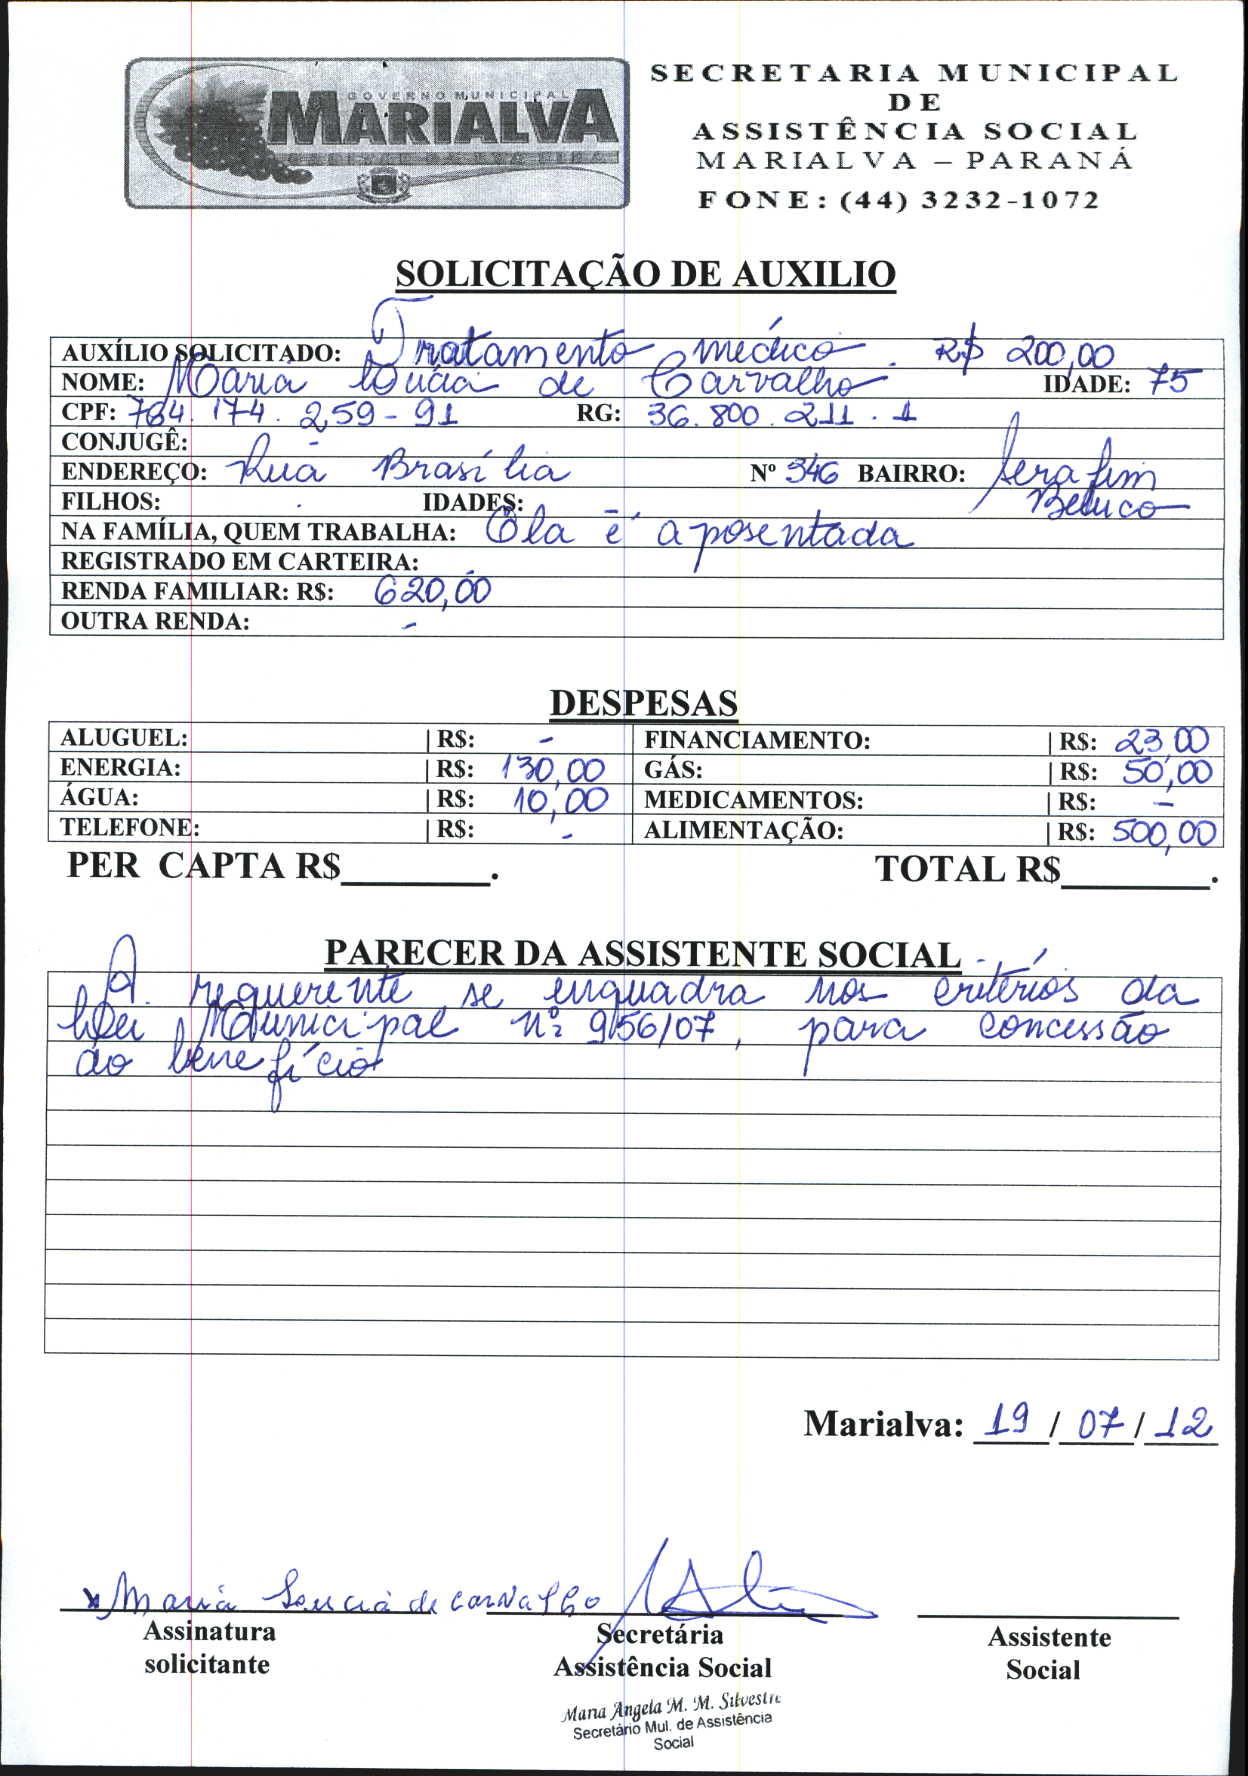 GOVERNO MUNICIPAL
MARIALVA
SECRETARIA MUNICIPAL
DE
ASSISTÊNCIA SOCIAL
MARIALVA – PARANÁ
FONE: (44) 3232-1072
SOLICITAÇÃO DE AUXILIO
AUXÍLIO SOLICITADO: Tratamento médico. R$ 200,00
NOME: Maria Lucia de Carvalho IDADE: 75
CPF: 764.174.259-91 RG: 36.800.211.1
CONJUGÊ: -
ENDEREÇO: Rua Brasília Nº 346 BAIRRO: Serafim Beluco
FILHOS: - IDADES: -
NA FAMÍLIA, QUEM TRABALHA: Ela é aposentada
REGISTRADO EM CARTEIRA: -
RENDA FAMILIAR: R$: 620,00
OUTRA RENDA: -
DESPESAS
ALUGUEL: | R$: - FINANCIAMENTO: | R$: 23,00
ENERGIA: | R$: 130,00 GÁS: | R$: 50,00
ÁGUA: | R$: 10,00 MEDICAMENTOS: | R$: -
TELEFONE: | R$: - ALIMENTAÇÃO: | R$: 500,00
PER CAPTA R$________. TOTAL R$________.
PARECER DA ASSISTENTE SOCIAL
A requerente se enquadra nos critérios da
Lei Municipal nº 956/07, para concessão
do benefício
Marialva: 19 / 07 / 12
x Maria Loucia de carvalho
Assinatura solicitante
Secretária Assistência Social
Assistente Social
Maria Angela M. M. Silvestre
Secretário Mul. de Assistência
Social